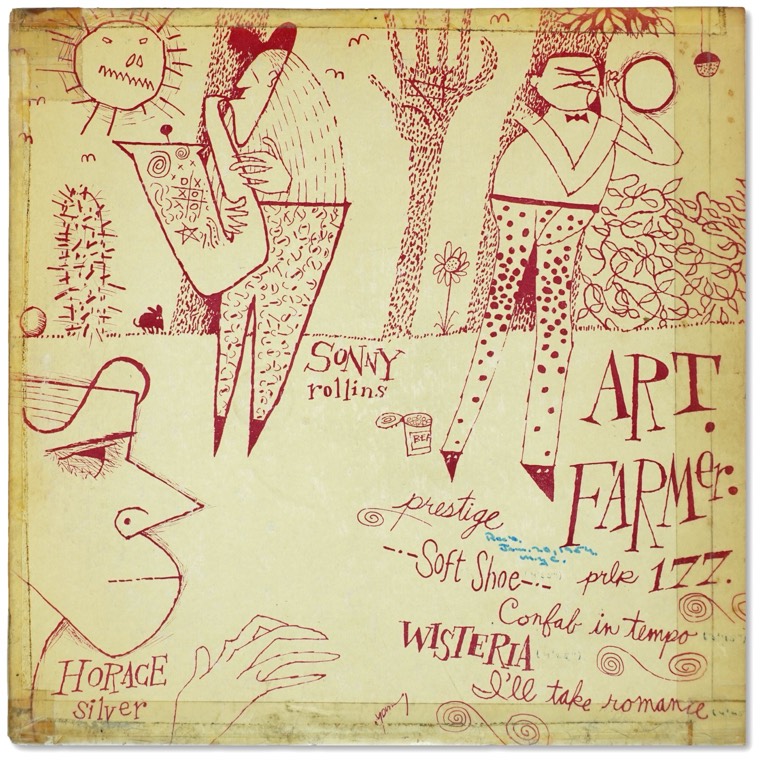 SONNY
rollins
ART.
FARMer.
BEF
prestige
Rec'd.
Jan. 20, 1954.
N.Y.C.
--Soft Shoe-.-
prlp 177.
Confab in tempo
WISTERIA
I'll take romance
HORACE
silver